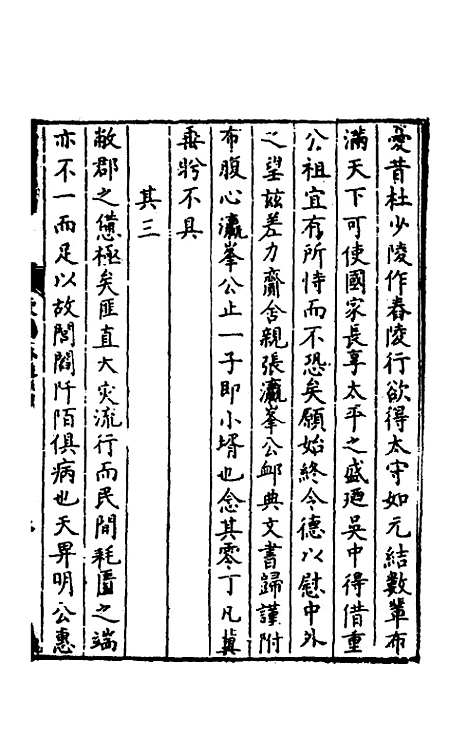 憂昔杜少陵作舂陵行欲得太守如元結數輩布
滿天下可使國家長享太平之盛廼吳中得借重
公祖宜有所恃而不恐矣願始終令德以慰中外
之望茲差力齎舍親張瀛峯公卹典文書歸謹附
布腹心瀛峯公止一子即小壻也念其零丁凡冀
垂兮不具
其三
敝郡之憊極矣匪直大災流行而民間耗匱之端
亦不一而足以故閭閻阡陌俱病也天畀明公惠